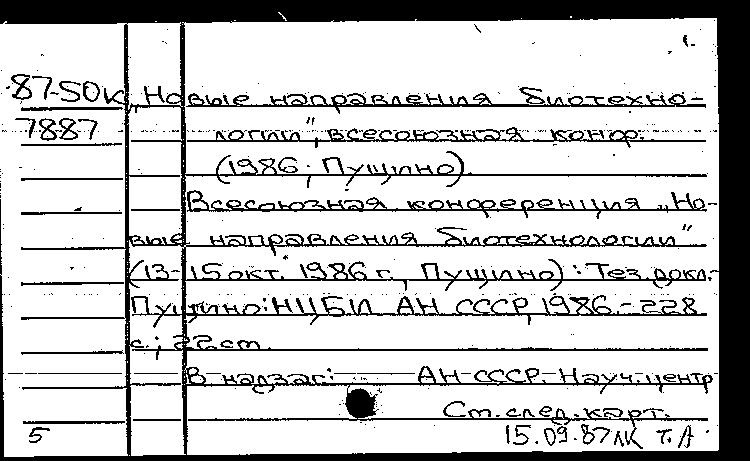 1.
87-50к „Новые направления биотехно-
7887 логии”, всесоюзная конф.
(1986; Пущино).
Всесоюзная конференция „Но-
вые направления биотехнологии”
(13-15 окт. 1986 г., Пущино): Тез. докл.-
Пущино: НЦБИ АН СССР, 1986.-228
с.; 22 см.
В надзаг: АН СССР. Науч. центр
См. след. карт.
5 15.09.87 ЛК Т.А.